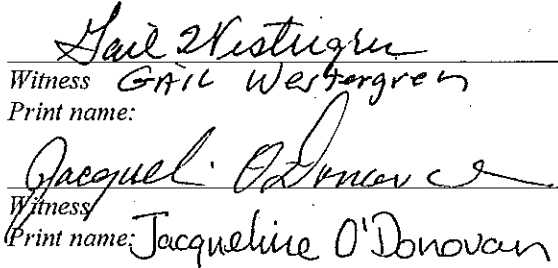 Gail Westergren
Witness GAIL Westergren
Print name:
Jacqueli O'Donov
Witness
Print name: Jacqueline O'Donovan